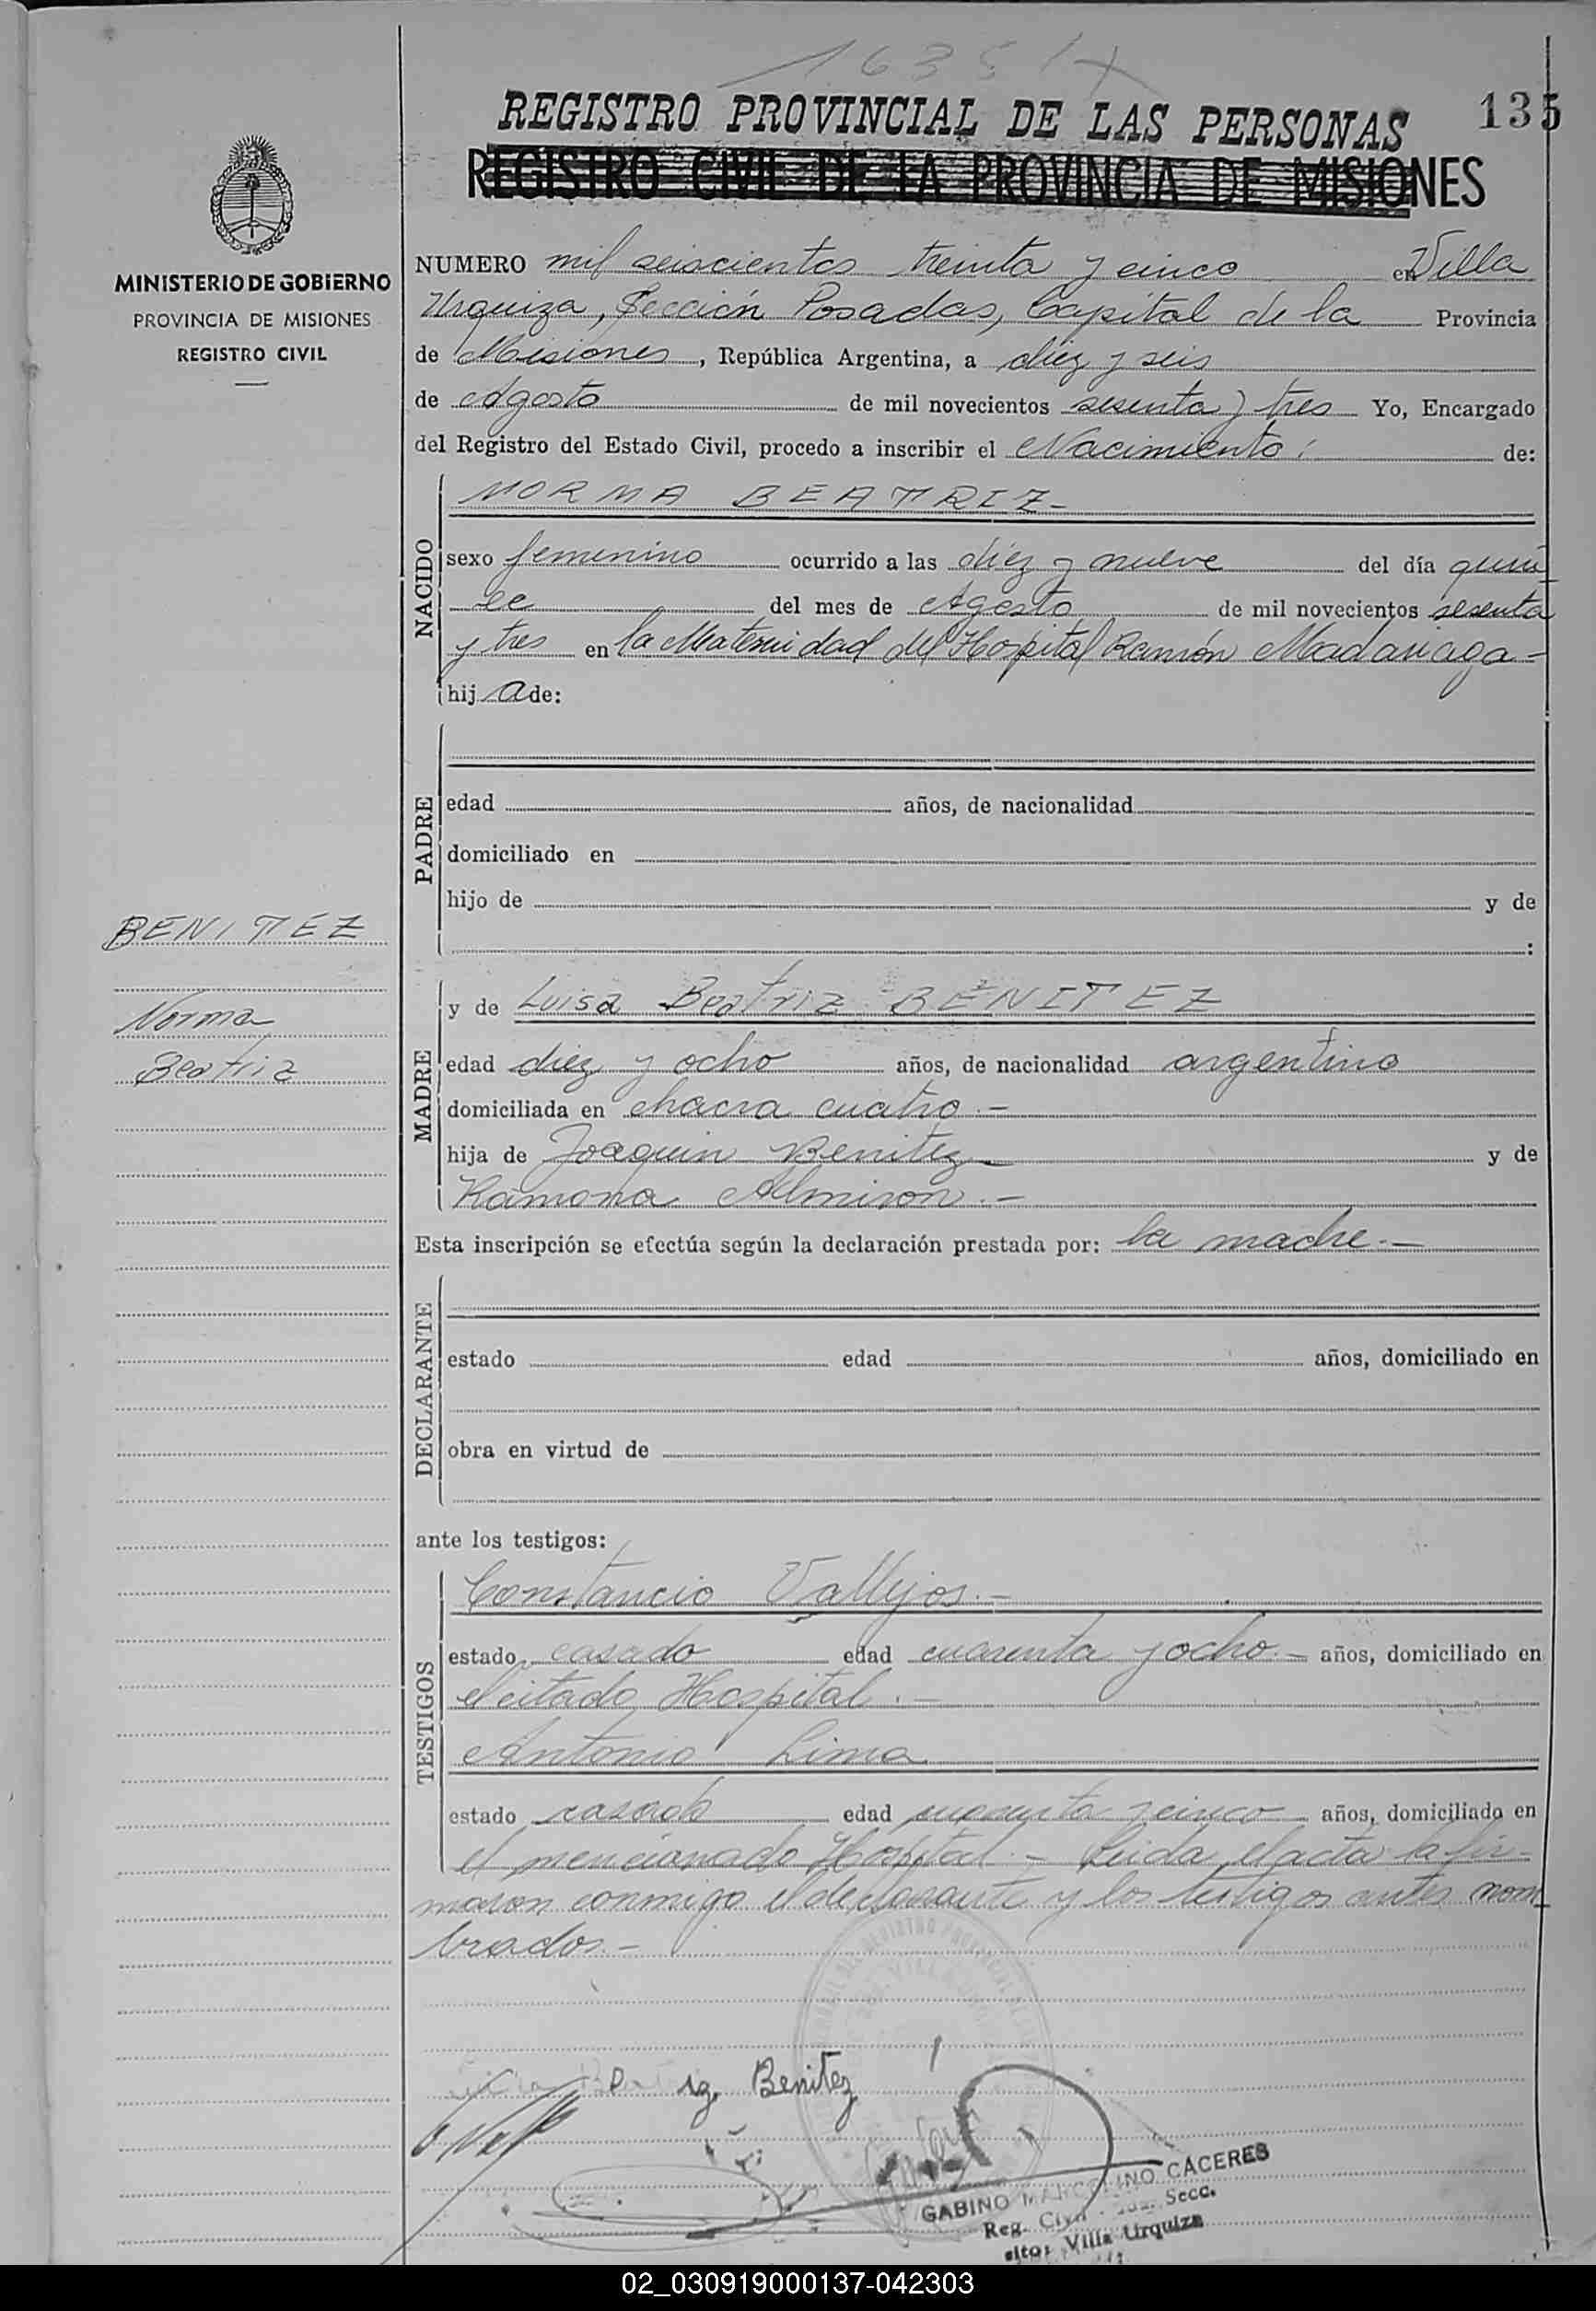 1635
REGISTRO PROVINCIAL DE LAS PERSONAS
135
REGISTRO CIVIL DE LA PROVINCIA DE MISIONES
MINISTERIO DE GOBIERNO
PROVINCIA DE MISIONES
REGISTRO CIVIL
NUMERO mil seiscientos treinta y cinco en Villa
Urquiza, Sección Posadas, Capital de la Provincia
de Misiones, República Argentina, a diez y seis
de Agosto de mil novecientos sesenta y tres Yo, Encargado
del Registro del Estado Civil, procedo a inscribir el Nacimiento: de:
NACIDO
NORMA BEATRIZ-
sexo femenino ocurrido a las diez y nueve del día quin
ce del mes de Agosto de mil novecientos sesenta
y tres en la Maternidad del Hospital Ramón Madariaga-
hija de:
PADRE
edad años, de nacionalidad
domiciliado en
hijo de y de
:
BENITEZ
Norma
Beatriz
MADRE
y de Luisa Beatriz BENITEZ
edad diez y ocho años, de nacionalidad argentina
domiciliada en chacra cuatro.-
hija de Joaquin Benitez y de
Ramona Almiron.-
Esta inscripción se efectúa según la declaración prestada por: la madre.-
DECLARANTE
estado edad años, domiciliado en
obra en virtud de
ante los testigos:
TESTIGOS
Constancio Vallejos.-
estado casado edad cuarenta y ocho.- años, domiciliado en
el citado Hospital.-
Antonio Lima
estado casado edad cuarenta y cinco años, domiciliado en
el mencionado Hospital.- Leida el acta la fir-
maron conmigo el declarante y los testigos antes nom
brados.-
Benitez
GABINO MARCOLINO CACERES
Reg. Civil Secc.
Villa Urquiza
02_030919000137-042303